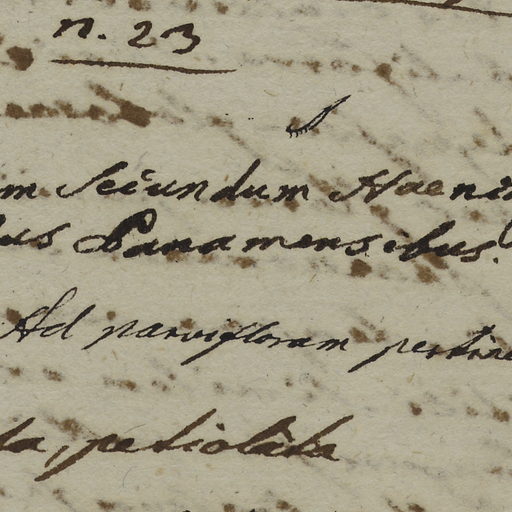 n. 23
m Secundum Haeni
us Panamensibus.
Ad parvifloram pertine
ta, petiolata